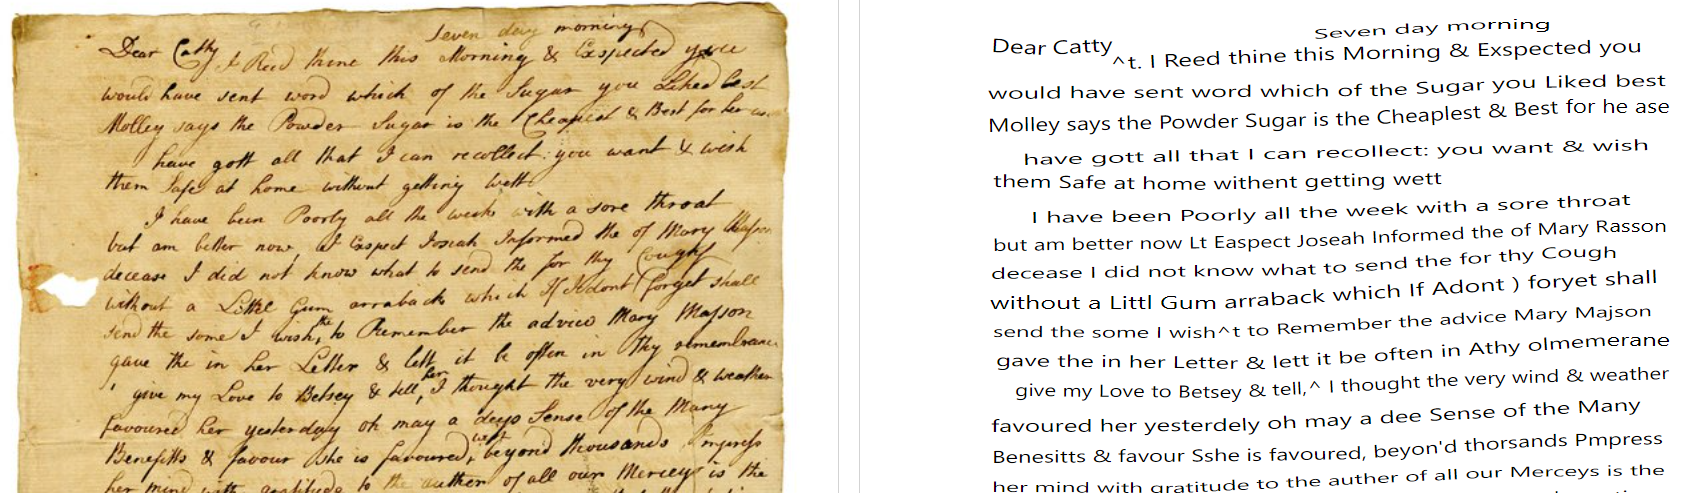 Seven day morning
Dear Catty I Reed thine this Morning & Exspected you
would have sent word which of the Sugar you Liked best
Molley says the Powder Sugar is the Cheapest & Best for her
have gott all that I can recollect you want & wish
them Safe at home without getting wett
I have been Poorly all the week with a sore throat
but am better now, Exspect Josiah Informed the of Mary Masson
decease I did not know what to send the for thy Cough
without a Little Gum arraback which If I dont forget shall
send the some I wish the to Remember the advice Mary Masson
gave the in her Letter & lett it be often in thy remembrance
give my Love to Betsey & tell her I thought the very wind & weather
favoured her yesterday oh may a deep Sense of the Many
Benefitts & favour She is favoured with beyond thousands Impress
her mind with gratitude to the auther of all our Merceys is the
Seven day morning
Dear Catty ^t. I Reed thine this Morning & Exspected you
would have sent word which of the Sugar you Liked best
Molley says the Powder Sugar is the Cheaplest & Best for he ase
have gott all that I can recollect: you want & wish
them Safe at home withent getting wett
I have been Poorly all the week with a sore throat
but am better now Lt Easpect Joseah Informed the of Mary Rasson
decease I did not know what to send the for thy Cough
without a Littl Gum arraback which If Adont ) foryet shall
send the some I wish^t to Remember the advice Mary Majson
gave the in her Letter & lett it be often in Athy olmemerane
give my Love to Betsey & tell,^ I thought the very wind & weather
favoured her yesterdely oh may a dee Sense of the Many
Benesitts & favour Sshe is favoured, beyon'd thorsands Pmpress
her mind with gratitude to the auther of all our Merceys is the